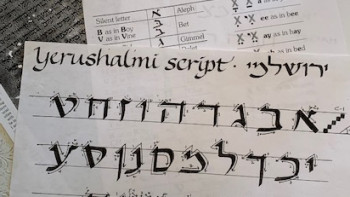 Silent letter א Aleph:
B as in Boy ב Bet
V as in Vine ב
ג Gimmel
ee as in bee
ay as in hay
as in bed
Yerushalmi script · ירושלמי
אבגדהוזחט
יכךלמםנןסע